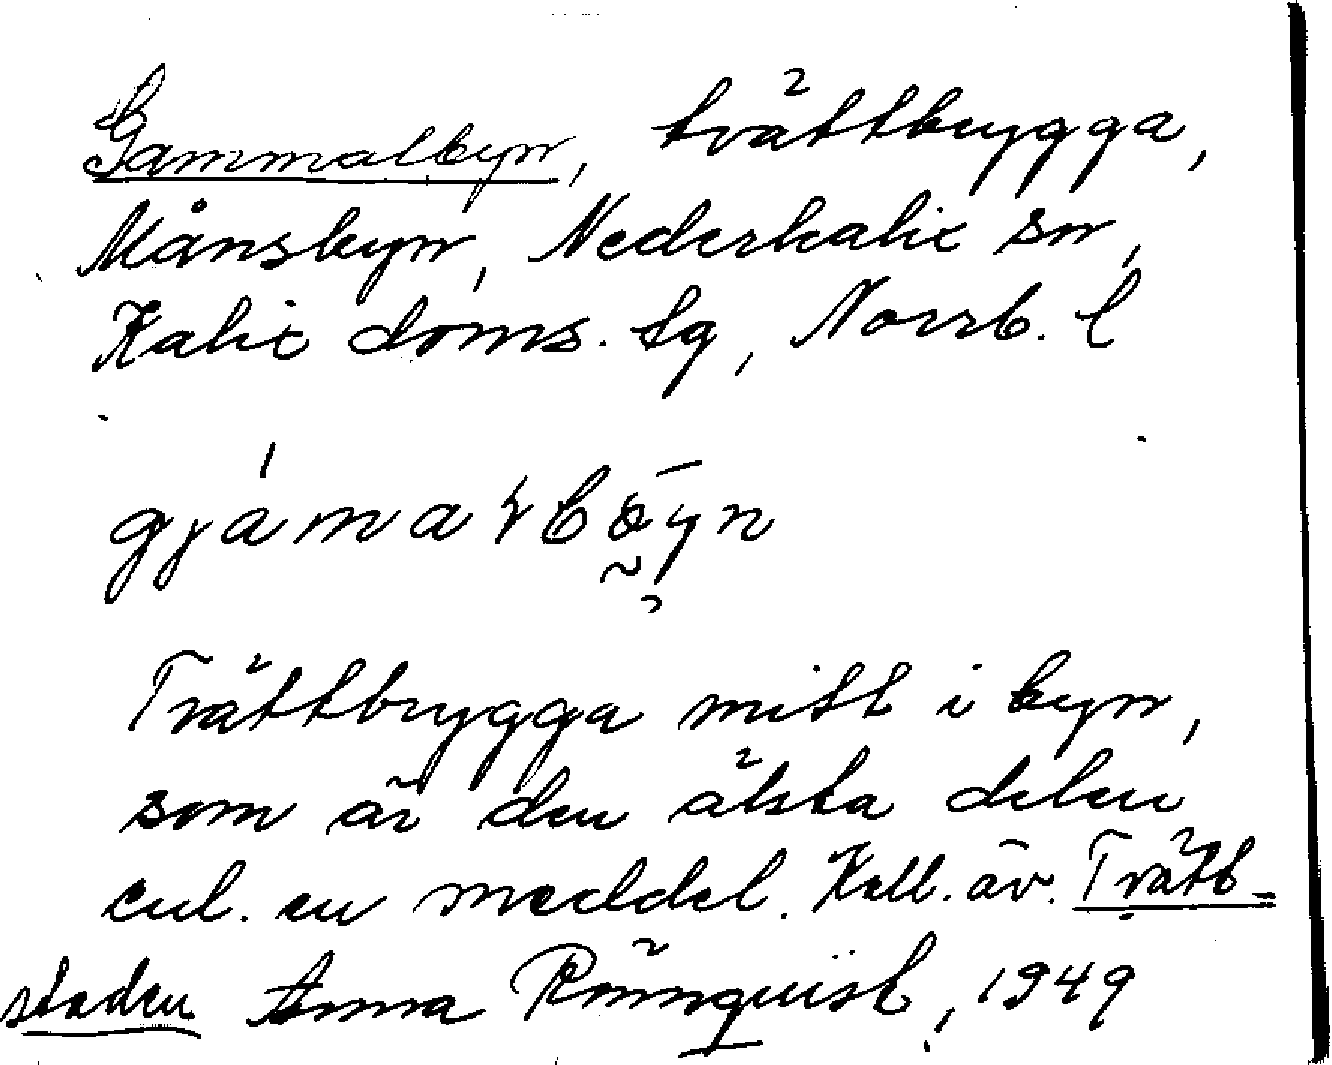 Gammalbyn, tvättbrygga,
Månsbyn, Nederkalix sn,
Kalix doms. lg, Norrb. l
Tvättbrygga mitt i byn,
som är den älsta delen
enl. en meddel. Kall. äv. Tvätt-
staden Anna Rönnquist, 1949